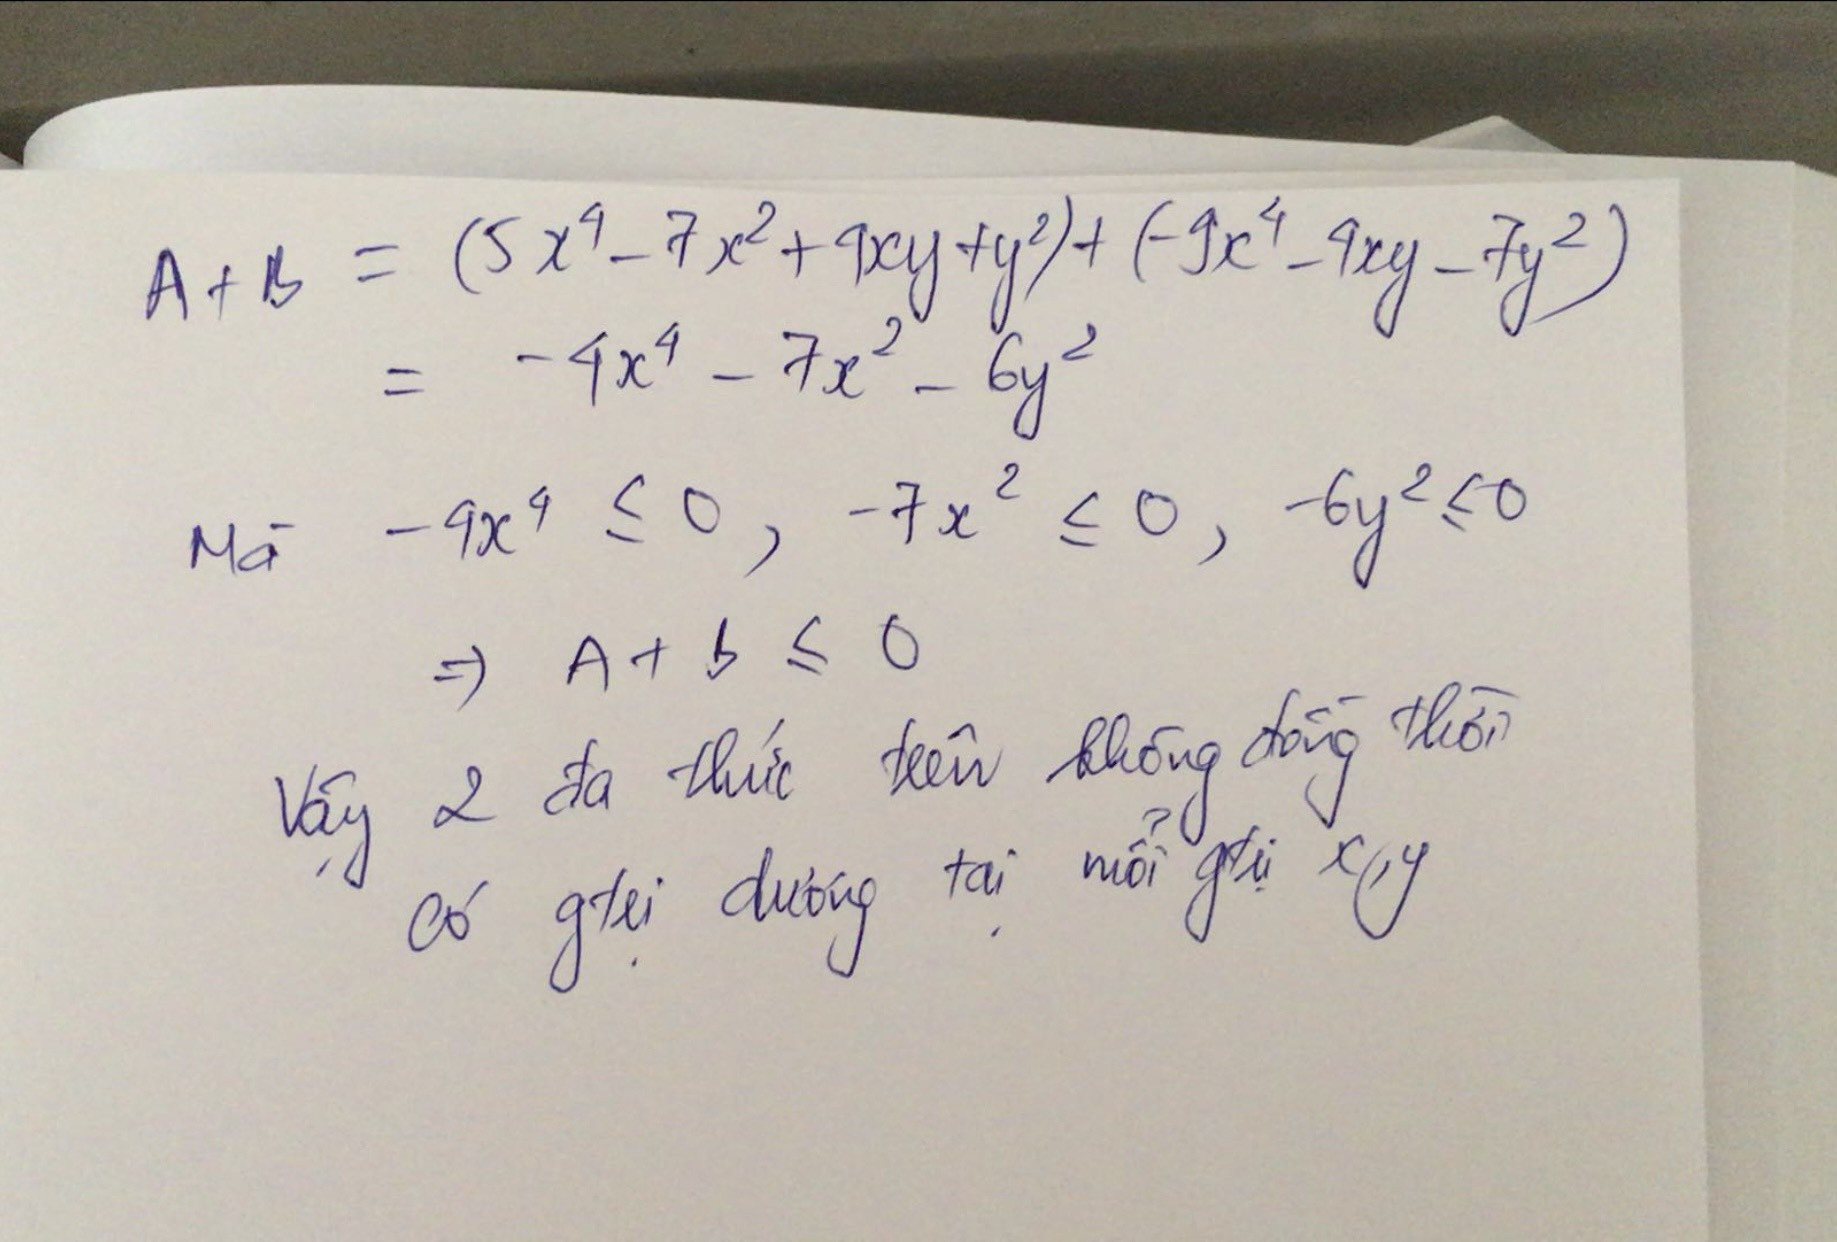 A + B = (5x⁴ - 7x² + 4xy + y²) + (-9x⁴ - 4xy - 7y²)
= -4x⁴ - 7x² - 6y²
Mà -4x⁴ ≤ 0, -7x² ≤ 0, -6y² ≤ 0
⇒ A + B ≤ 0
Vậy 2 đa thức trên không đồng thời
có gtrị dương tại mỗi gtrị x, y